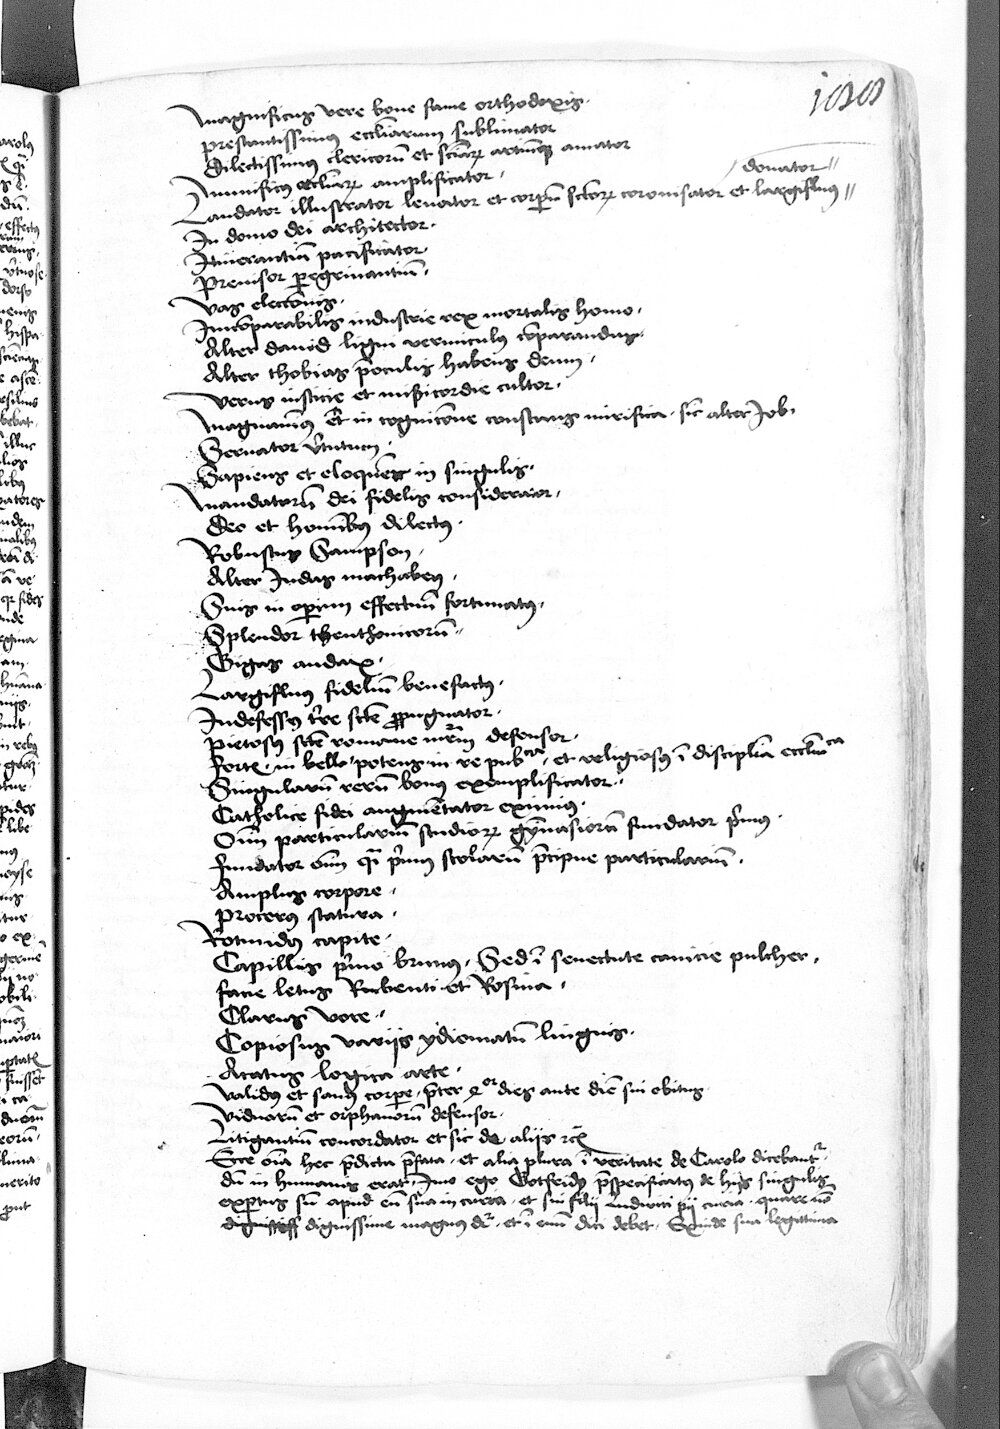 1088
magnificus vere bone fame orthodoxis.
prestantissimus eccliarum sublimator
dilectissimus clericorū et sciarꝝ artiumqꝫ amator
donator //
Munificus eccliarꝝ amplificator.
Laudator illustrator levator et corpum sctorꝝ coronisator et largifluus //
In domo dei architector.
Itinerantiū pacificator.
Provisor peregrinantiū.
Vas electōnis.
Incōparabilis industrie rex mortalis homo.
Alter david ligni vermiculus cōparandus.
Alter thobias p oculis habens deum.
Verus iusticie et misēicordie cultor.
Magnanimus Et in cognicōne constans mirifica. sic alter Job.
Servator v̄tutum.
Sapiens et eloquēs in singulis.
Mandatorū dei fidelis considerator.
Deo et hominibus dilectus.
Robustus Sampson.
Alter Judas machabeus.
Suis in operum effectum fortunatus.
Splendor theuthonicorū.
Gigas audax.
Largifluus fidelium benefactus.
Indefessus tr̄re sctē propugnator.
Pietosus sctē romane mr̄is defensor.
fortis in bello. potens in re pubca. et religiosus ī disciplīa ecclīca
Singularū rerū bonus exemplificator.
Catholice fidei augmētator eximius.
Oīm particulariū studiorꝝ gymnasiorū fundator p̄mus.
fundator oīm qī p̄mus scolarū p̄cipue particularium.
Amplus corpore.
Procerus statura.
Rotundus capite.
Capillis p̄mo brunus. Sed ī senectute canicie pulcher.
facie letus Rubenti et Rosina.
Clarus voce.
Copiosus variis ydiomatū linguis.
Acatus logica arte.
validus et sanus corpore. p̄ter 4or dies ante diē sui obitus
Viduarū et orphanorū defensor.
Litigantiū concordator et sic de aliis rc̄
Ecce oīa hec p̄dicta p̄fata. et alia plura ī veritate de Carolo dicebantr.
dū in humanis erat. Imo ego Gotfridus p̄specificatus de hiis singulis
expertus sū apud eū sua in curia. et sui filij ludovici pij curia. quare nō
dignissime magnus dr̄. et ī evū dici debet. Exinde sua legittima